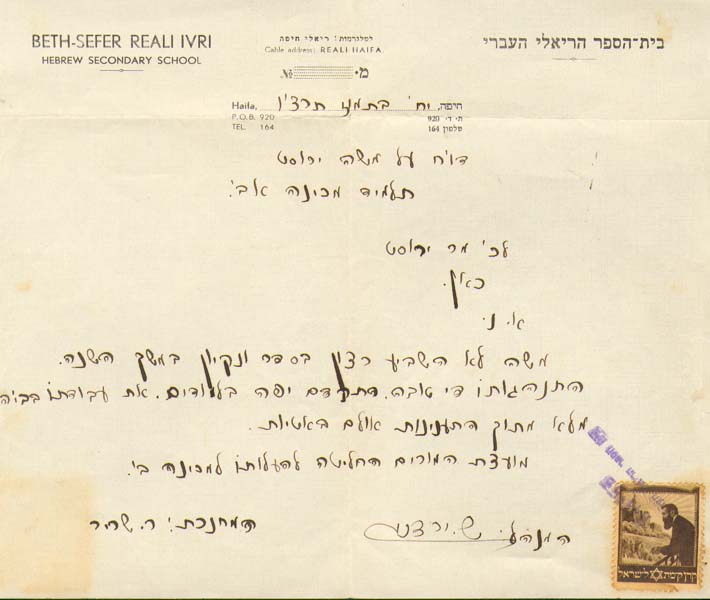 BETH-SEFER REALI IVRI
HEBREW SECONDARY SCHOOL
למלגרמות: ריאלי חיפה
Cable address: REALI HAIFA
בית-הספר הריאלי העברי
מ. №
Haifa, יח' בתמוז תרצ"ו חיפה,
P.O.B. 920 ת. ד. 920
TEL. 164 טלפון 164
דו"ח על משה ירוסט
תלמיד מכינה א ב'.
לכ' מר ירוסט
כאן.
א. נ.
משה לא השביע רצון בספר ונקיון במשך השנה.
התנהגותו די טובה. התקדם יפה בלמודים. את עבודתו בביה
מלא מתוך התענינות אולם באטיות.
מועצת המורים החליטה להעלותו למכינה ב'.
המנהל:
המחנכת: ר.
קרן קימת לישראל